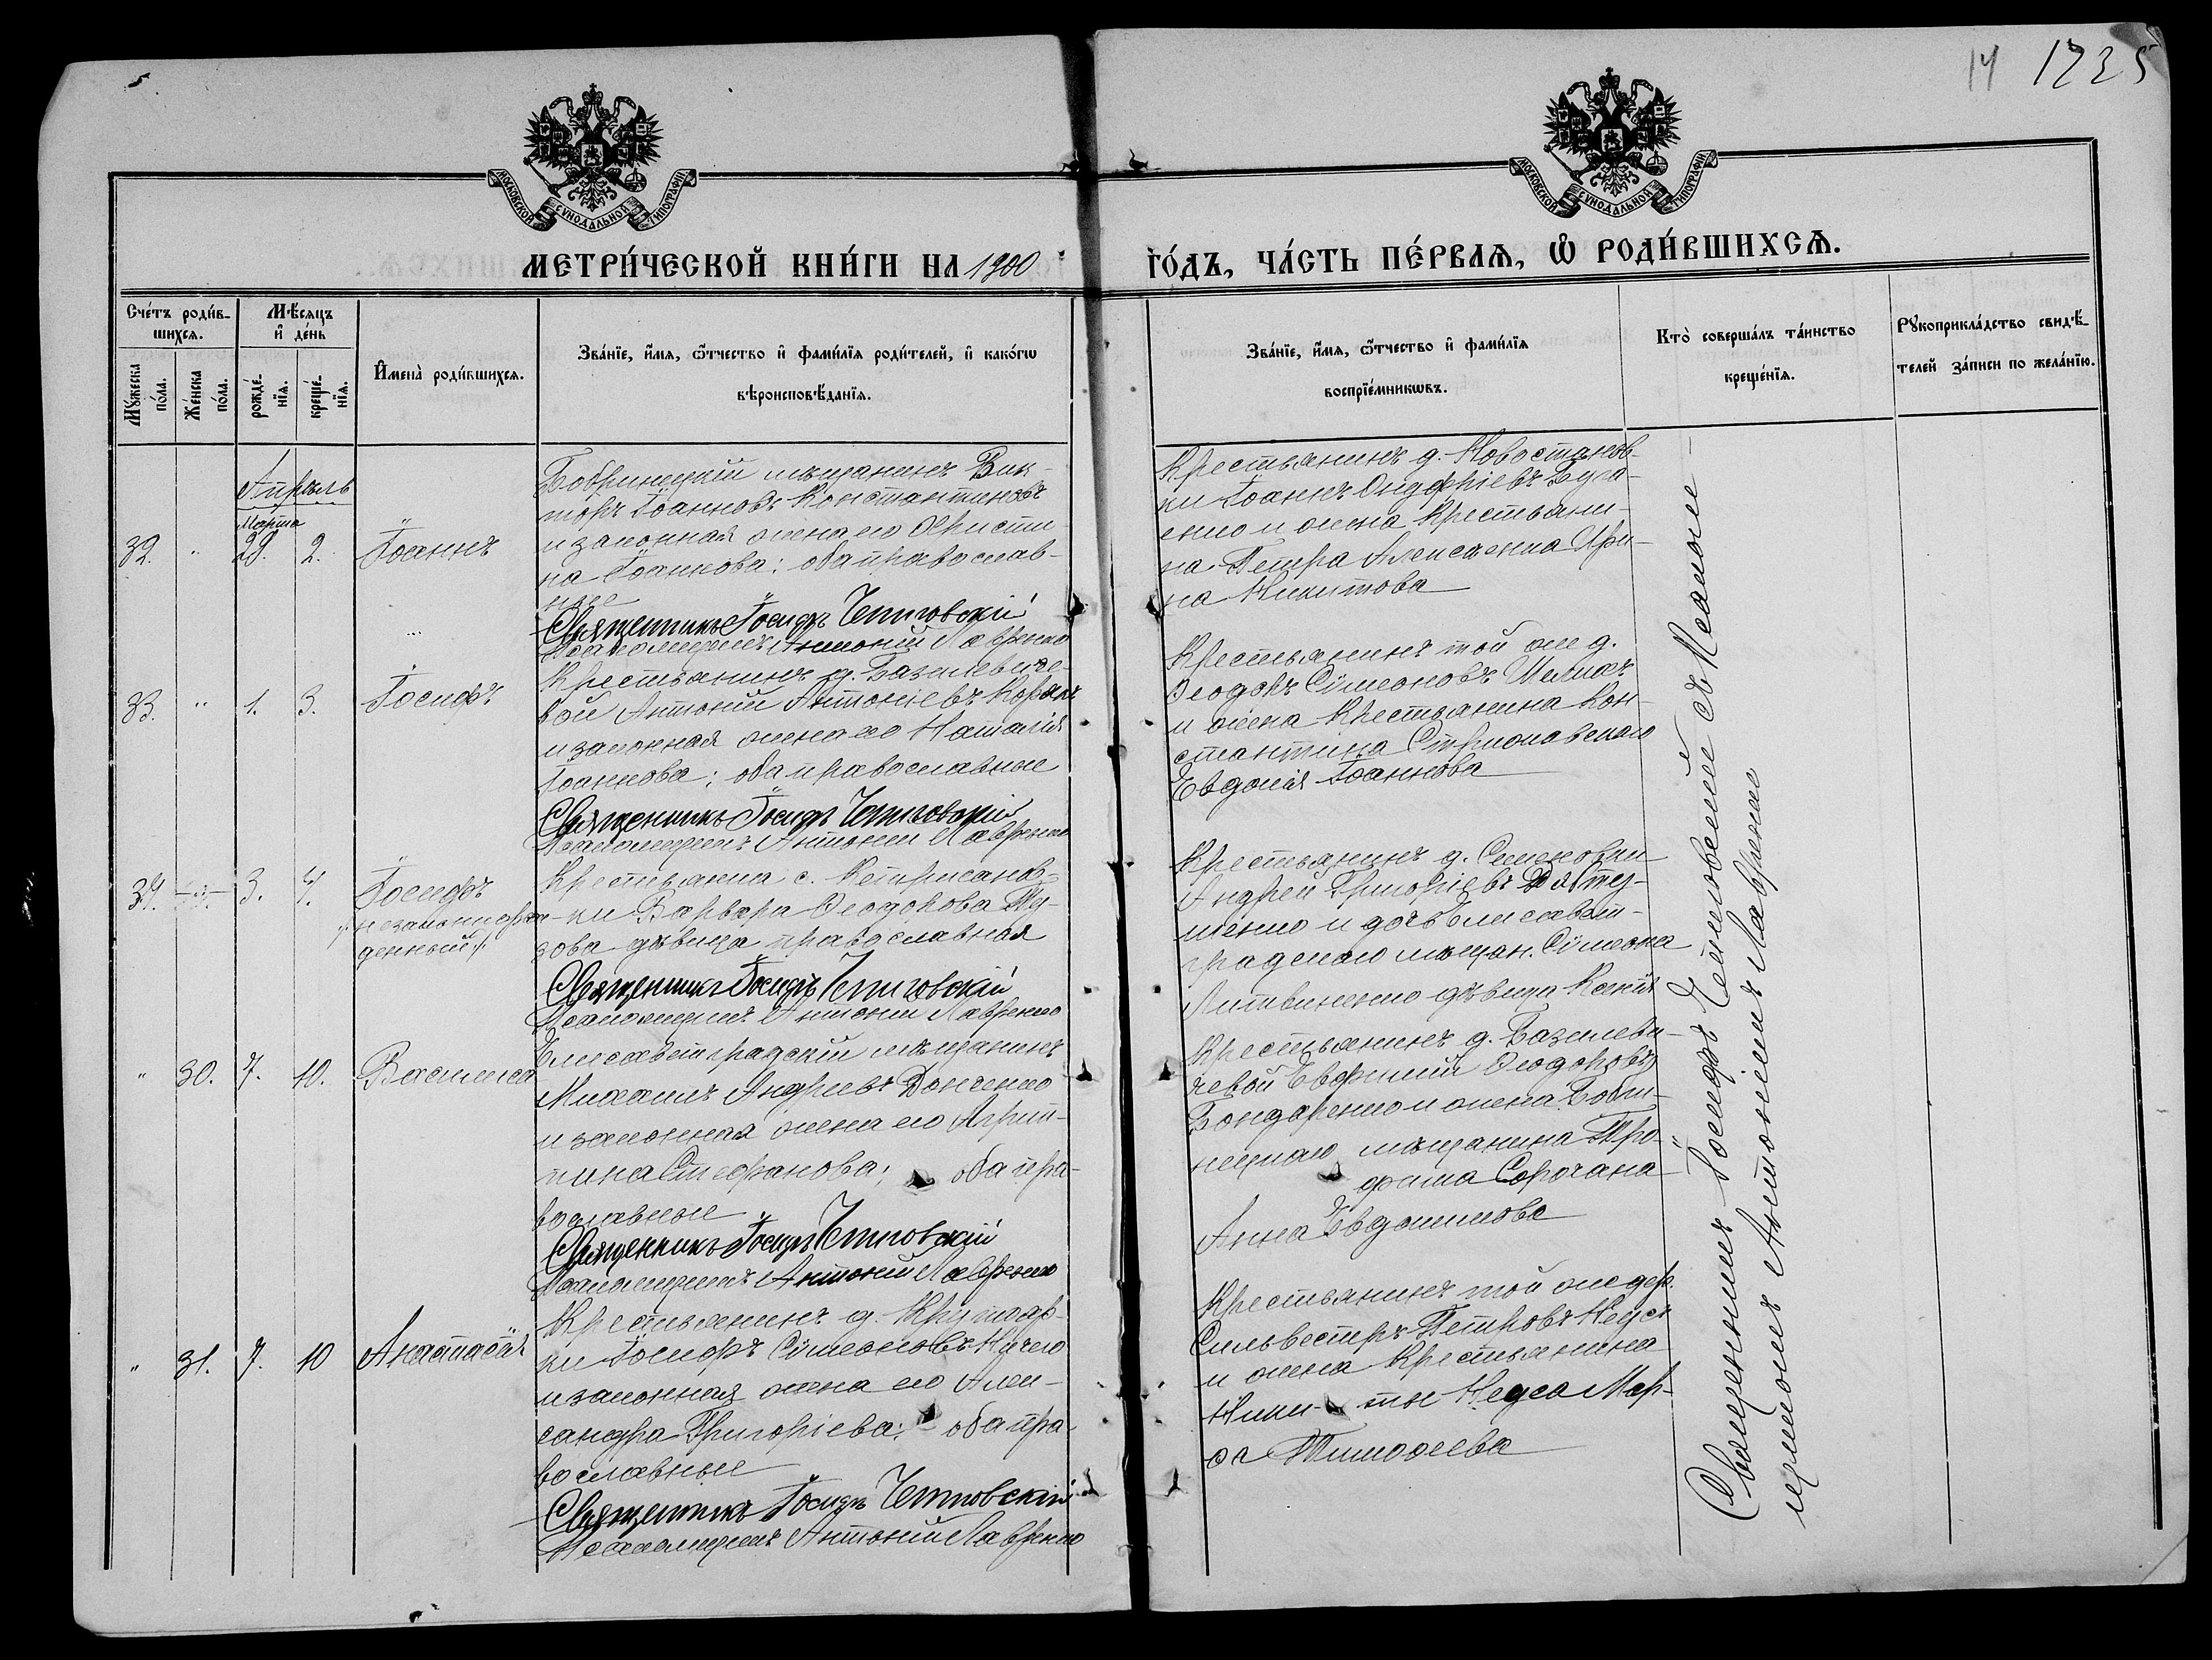 14 1225
МОСКОВСКОЙ СѴНОДАЛЬНОЙ ТИПОГРАФІИ
МОСКОВСКОЙ СѴНОДАЛЬНОЙ ТИПОГРАФІИ
МЕТРИ́ЧЕСКОЙ КНИ́ГИ НА 1900 ГО́ДЪ, ЧА́СТЬ ПЕ́РВАѦ, Ѡ҆ РОДИ́ВШИХСѦ.
Сче́тъ роди́в-
шихсѧ.
Мѣ́сѧцъ
и҆ де́нь
Мꙋ́жеска
по́ла.
Же́нска
по́ла.
рожде́-
нїѧ.
креще́-
нїѧ.
И҆мена̀ роди́вшихсѧ.
Зва́нїе, и҆́мѧ, ѻ҆́тчество и҆ фами́лїѧ роди́телей, и҆ како́гѡ
вѣроисповѣ́данїѧ.
Зва́нїе, и҆́мѧ, ѻ҆́тчество и҆ фами́лїѧ
воспрїе́мникѡвъ.
Кто̀ соверша́лъ та́инство
креще́нїѧ.
Рꙋкоприкла́дство свидѣ́-
телей за́писи по жела́нїю.
Апрѣль
Марта
32. " 28. 2. Іоаннъ
Бобринецкій мѣщанинъ Вик-
торъ Іоанновъ Константиновъ
и законная жена его Христи-
на Іоаннова; оба православ-
ные
Священникъ Іосифъ Четыовскій
Псаломщикъ Антоній Лавренко
Крестьянинъ д. Новостанков-
ки Іоаннъ Онуфріевъ Буга-
енко и жена крестьяни-
на Петра Алексѣенка Ири-
на Никитова
33. " 1. 3. Іосифъ
Крестьянинъ д. Базилевиче-
вой Антоній Антоніевъ
и законная жена его Наталія
Іоаннова; оба православные
Священникъ Іосифъ Четыовскій
Псаломщикъ Антоній Лавренко
Крестьянинъ той же д.
Ѳеодоръ Сѵмеоновъ
и жена крестьянина Кон-
стантина
Евдокія Іоаннова
34. 3. 4. Іосифъ
/незаконнорож-
денный/
Крестьянка с.
ки Варвара Ѳеодорова
дѣвица православная
Священникъ Іосифъ Четыовскій
Псаломщикъ Антоній Лавренко
Крестьянинъ д. Семеновки
Андрей Григоріевъ
и дочь Елисавет-
градскаго мѣщан. Сѵмеона
Литвиненко дѣвица Ксенія
" 30. 7. 10. Василиса
Елисаветградскій мѣщанинъ
Михаилъ Андреевъ Донченко
и законная жена его Агрип-
пина Стефанова; оба пра-
вославные
Священникъ Іосифъ Четыовскій
Псаломщикъ Антоній Лавренко
Крестьянинъ д. Базилеви-
чевой Евфимій Ѳеодоровъ
Бондаренко и жена Бобри-
нецкаго мѣщанина Тро-
фима Сорочана
Анна Евдокимова
" 31. 7. 10 Анастасія
Крестьянинъ д.
ки Іосифъ Сѵмеоновъ
и законная жена его Алек-
сандра Григоріева; оба пра-
вославные
Священникъ Іосифъ Четыовскій
Псаломщикъ Антоній Лавренко
Крестьянинъ той же дер.
Сильвестръ Петровъ
и жена крестьянина
Ники-ты Мар-
ѳа Тимоѳеева
Священникъ Іосифъ Четыовскій съ Псалом-
щикомъ Антоніемъ Лавренко